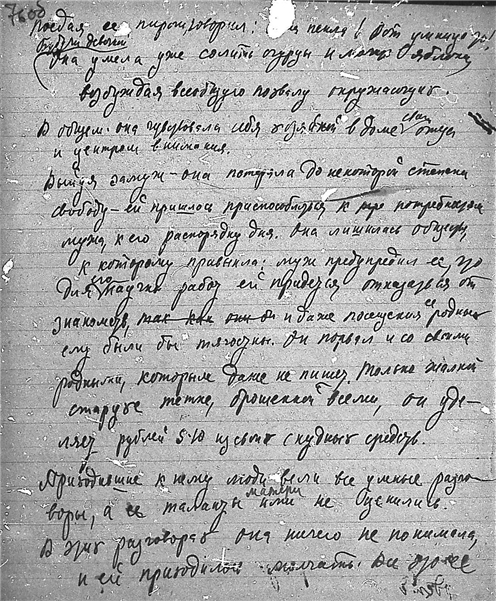 поедая ее пироги говорил: пекла! Вот умница
она умела уже солить огурцы и яблоки
возбуждая всеобщую похвалу окружающих.
В общем она чувствовала себя хозяйкой в доме отца
и центром внимания.
Выйдя замуж – она потеряла до некоторой степени
свободу – ей пришлось приспособляться к потребностям
мужа, к его распорядку дня. Она лишилась общества,
к которому привыкла. Муж предупредил ее, что
для его научн. работ ей придется отказаться от
знакомств, так как они и даже посещения ее родных
ему были бы тягостны. Он порвал и со своими
родными, которые даже не пишет. Только жалкой
старухе тетке, брошенной всеми, он уде-
ляет рублей 5-10 из своих скудных средств.
Приходившие к нему люди вели все умные разго-
воры, а ее таланты ими не ценились.
В этих разговорах она ничего не понимала,
и ей приходилось молчать. Все это ее